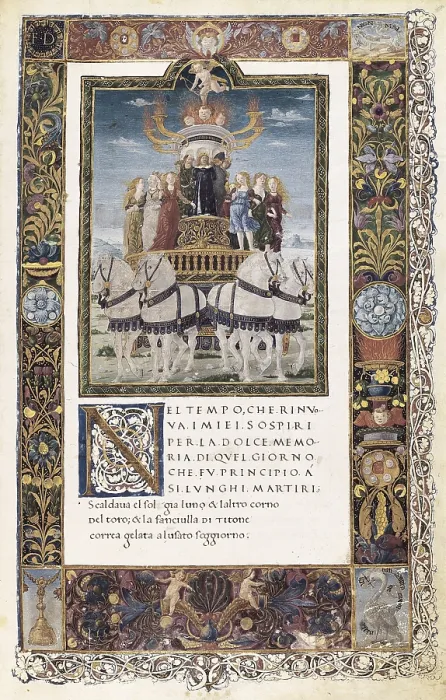 NEL TEMPO, CHE RINV-
VA. I. MIEI. SOSPIRI
PER. LA. DOLCE. MEMO-
RIA. DI. QVEL. GIORNO.
CHE. FV. PRINCIPIO. A
SI. LVNGHI. MARTIRI.
Scaldaua el sol gia luno & laltro corno
del toro; & la fanciulla DI TITONE
correa gelata alusato soggiorno: